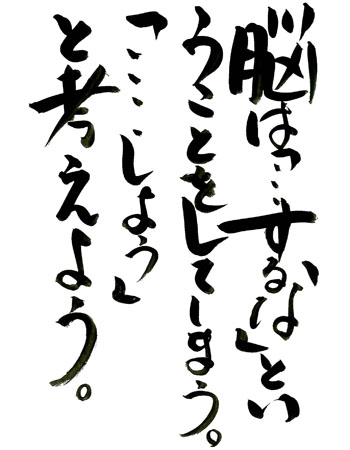 脳は「…するな」とい
うことをしてしまう。
「…しよう」
と考えよう。